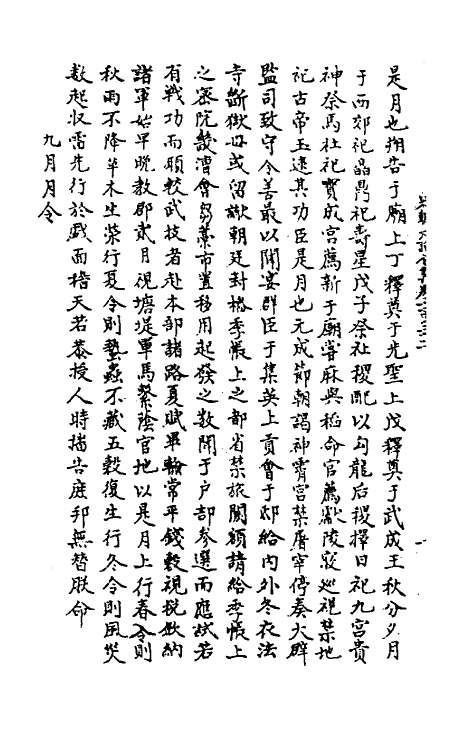 是月也朔告于廟上丁釋奠于先聖上戊釋奠于武成王秋分夕月
于西郊祀晶鼎祀壽星戊子祭社稷配以勾龍后稷擇日祀九宮貴
神祭馬社祀寳成宮薦新于廟嘗麻與稻命官薦獻陵寢廵視禁地
祀古帝王逮其功臣是月也元成節朝謁神霄宮禁屠宰停奏大辟
監司致守令善最以聞宴群臣于集英上貢會于邸給内外冬衣法
寺斷獄毋或留獄朝廷封樁季帳上之都省禁旅闕額請給季帳上
之密院㡬漕會芻藁市置移用起發之數聞于户部參選而應試若
有戰功而願較武技者赴本部諸路夏賦畢輸常平錢穀視稅斂納
諸軍始早晩教郡貳月視塘堤軍馬繫䕃官地以是月上行春令則
秋雨不降草木生榮行夏令則蟄蟲不藏五穀復生行冬令則風災
數起收雷先行於戲面稽天若恭授人時播告庶邦無替朕命
九月月令